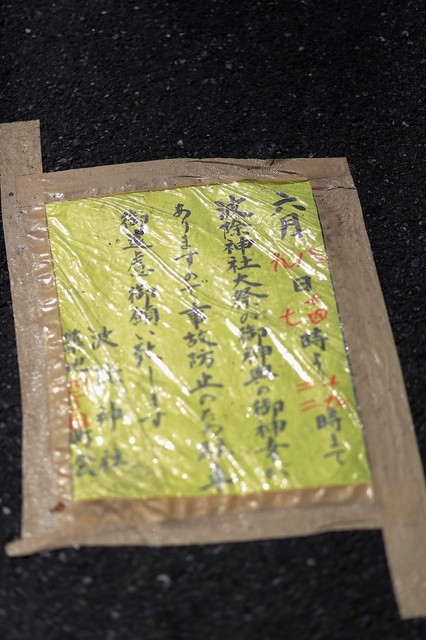 六月八九日十四七時より十九二二時まで
波除神社大祭の御神輿の御神幸が
ありますので事故防止のため駐車
御遠慮御願い致します
波除神社
築地 町会